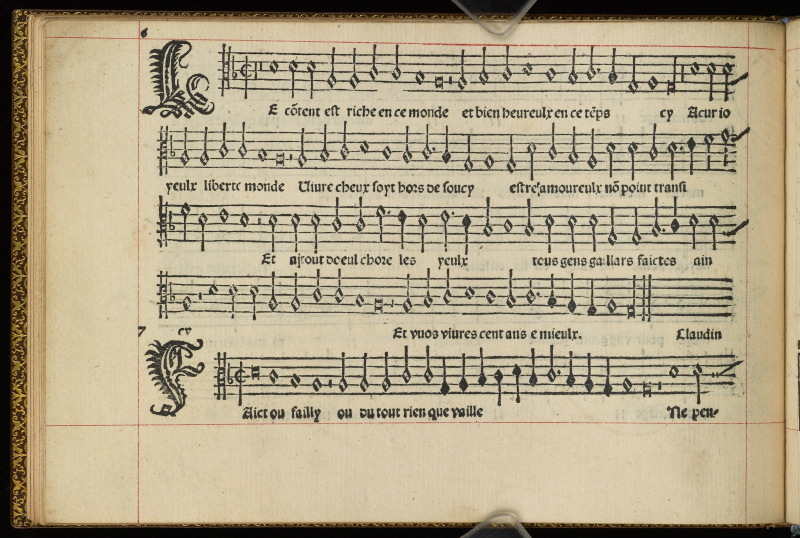 6
LE cõtent est riche en ce monde et bien heureulx en ce tẽps cy A cur io
yeulx liberte monde Uiure cheux soyt hors de soucy estre amoureulx nõ point transi
Et a tout doeul choze les yeulx tous gens gaillars faictes ain
cy Et vuos viures cent ans e mieulx. Claudin
7
Faict ou failly ou du tout rien que vaille Ne pen-